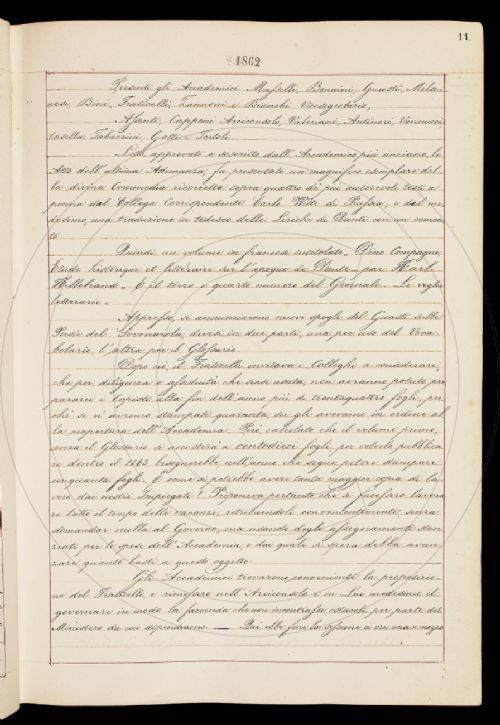 11
1862
Presenti gli Accademici Maffelli, Bonaini, Guasti, Mila-
nesi, Bini, Fraticelli, Zannoni e Bianchi Vicesegretario,
Assenti, Capponi Arciconsolo, Valeriani, Antinori, Vannucci,
Casella Tabarrini, Gotti e Tortoli
Letto, approvato e soscritto dall'Accademico più anziano, lo
Atto dell'ultima Adunanza, fu presentato un magnifico esemplare del-
la divina Commedia ricorretta sopra quattro dei più autorevoli testi a
penna dal Collega Corrispondente Carlo Witte di Prussia, e del me-
desimo, una traduzione in tedesco delle Liriche di Dante con un comen-
to
Quindi un volume in francese intitolato - Dino Compagni,
Etude historique et littéraire sur l'époque de Dante - par Karl
Hillebrand - E il terzo e quarto numero del Giornale - Le veglie
letterarie -
Appresso, si annunciarono nuovi spogli del Guasti sulle
Poesie del Savonarola, divisi in due parti, una per uso del Voca-
bolario, l'altra per il Glossario
Dopo ciò, il Fraticelli invitava i Colleghi a considerare,
che per diligenza e assiduità che siasi usata, non avranno potuto pre-
pararci i Copisti alla fin dell'anno più di trentaquattro fogli, per-
chè se n'avremo stampati quaranta, sei gli avevamo in ordine al-
la riapertura dell'Accademia. Poi, calcolato che il volume primo,
senza il Glossario si accosterà a centodieci fogli, per volerlo pubblica-
re dentro il 1863 bisognerebbe nell'anno che segue, potere stampare
cinquanta fogli. E come si potrebbe avere tanta maggior copia di la-
voro dai nostri Impiegati? Proponeva pertanto che si facessero lavora-
re tutto il tempo delle vacanze, retribuendoli convenientemente, senza
domandar nulla al Governo, ma usando degli assegnamenti stan-
ziati per le spese dell'Accademia, e dai quali si spera debba avan-
zare quanto basti a questo oggetto
Gli Accademici trovarono conveniente la proposizio-
ne del Fraticelli, e rimessero nell'Arciconsolo e in Lui medesimo il
governare in modo la faccenda, che non incontrasse ostacoli per parte del
Ministero da cui dipendiamo. — Poi ebbe fine la sessione a ore una e mezzo